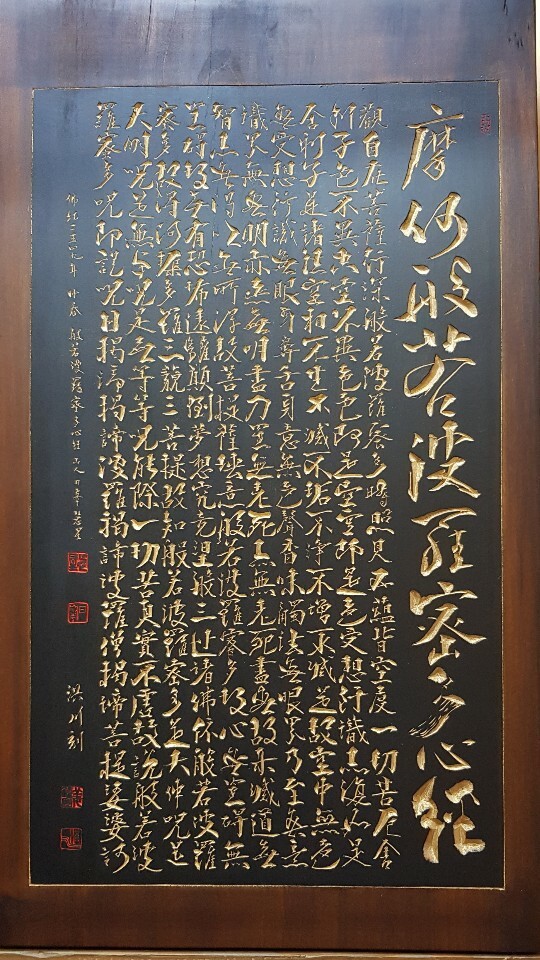 摩訶般若波羅密多心經
觀自在菩薩行深般若波羅蜜多時照見五蘊皆空度一切苦厄舍
利子色不異空空不異色色即是空空即是色受想行識亦復如是
舍利子是諸法空相不生不滅不垢不淨不增不減是故空中無色
無受想行識無眼耳鼻舌身意無色聲香味觸法無眼界乃至無意
識界無無明亦無無明盡乃至無老死亦無老死盡無苦集滅道無
智亦無得以無所得故菩提薩埵依般若波羅蜜多故心無罣碍無
罣碍故無有恐怖遠離顛倒夢想究竟涅槃三世諸佛依般若波羅
蜜多故得阿耨多羅三藐三菩提故知般若波羅蜜多是大神呪是
大明呪是無上呪是無等等呪能除一切苦真實不虛故說般若波
羅蜜多呪即說呪曰揭諦揭諦波羅揭諦波羅僧揭諦菩提娑婆訶
佛紀二五年 般若波羅蜜多心經
洪川刻